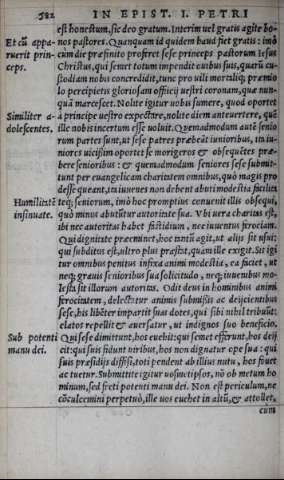 382 IN EPIST. I. PETRI
est honestum, sic deo gratum. Interim uel gratis agite bo-
Et cũ appa- nos pastores. Quanquam id quidem haud fiet gratis: imò
ruerit prin- cum die præfinito proferet sese princeps pastorum Iesus
ceps. Christus, qui semet totum impendit ouibus suis, quarũ cu-
stodiam nobis concredidit, tunc pro uili mortaliq; præmio
percipietis gloriosam officij uestri coronam, quæ nun-
quã marcescet. Nolite igitur uobis sumere, quod oportet
Similiter a- à principe uestro expectare, nolite diem anteuertere, quẽ
dolescentes. ille nobis incertum esse uoluit. Quemadmodum autẽ senio
rum partes sunt, ut sese patres præbeãt iunioribus, ita iu-
niores uicissim oportet morigeros & obsequẽtes præ-
bere senioribus: & quemadmodum seniores sese submit-
tunt per euangelicam charitatem omnibus, quò magis pro
desse queant, ita iuuenes non debent abuti modestia facilita
Humilitatẽ teq; seniorum, imò hoc promptius conuenit illis obsequi,
insinuate. quò minus abutũtur autoritate sua. Vbi uera charitas est,
ibi nec autoritas habet fastidium, nec iuuentus ferociam.
Qui dignitate præeminet, hoc tantũ agit, ut alijs sit usui:
qui subditus est, ultro plus præstat, quàm ille exigit. Sit igi
tur omnibus penitus infixa animi modestia, ea faciet, ut
neq; grauis senioribus sua solicitudo, neq; iuuenibus mo-
lesta sit illorum autoritas. Odit deus in hominibus animi
ferocitatem, delectatur animis submissis ac deijcientibus
sese, his libẽter impartit suas dotes, qui sibi nihil tribuũt:
elatos repellit & auersatur, ut indignos suo beneficio.
Sub potenti Qui sese dimittunt, hos euehit: qui semet efferunt, hos deij
manu dei. cit: qui suis fidunt uiribus, hos non dignatur ope sua: qui
suis præsidijs diffisi, toti pendent ab illius nutu, hos fouet
ac tuetur. Submittite igitur uosmetipsos, nõ ob metum ho
minum, sed freti potenti manu dei. Non est periculum, ne
cõculcemini perpetuò, ille uos euehet in altũ, & attollet,
cum